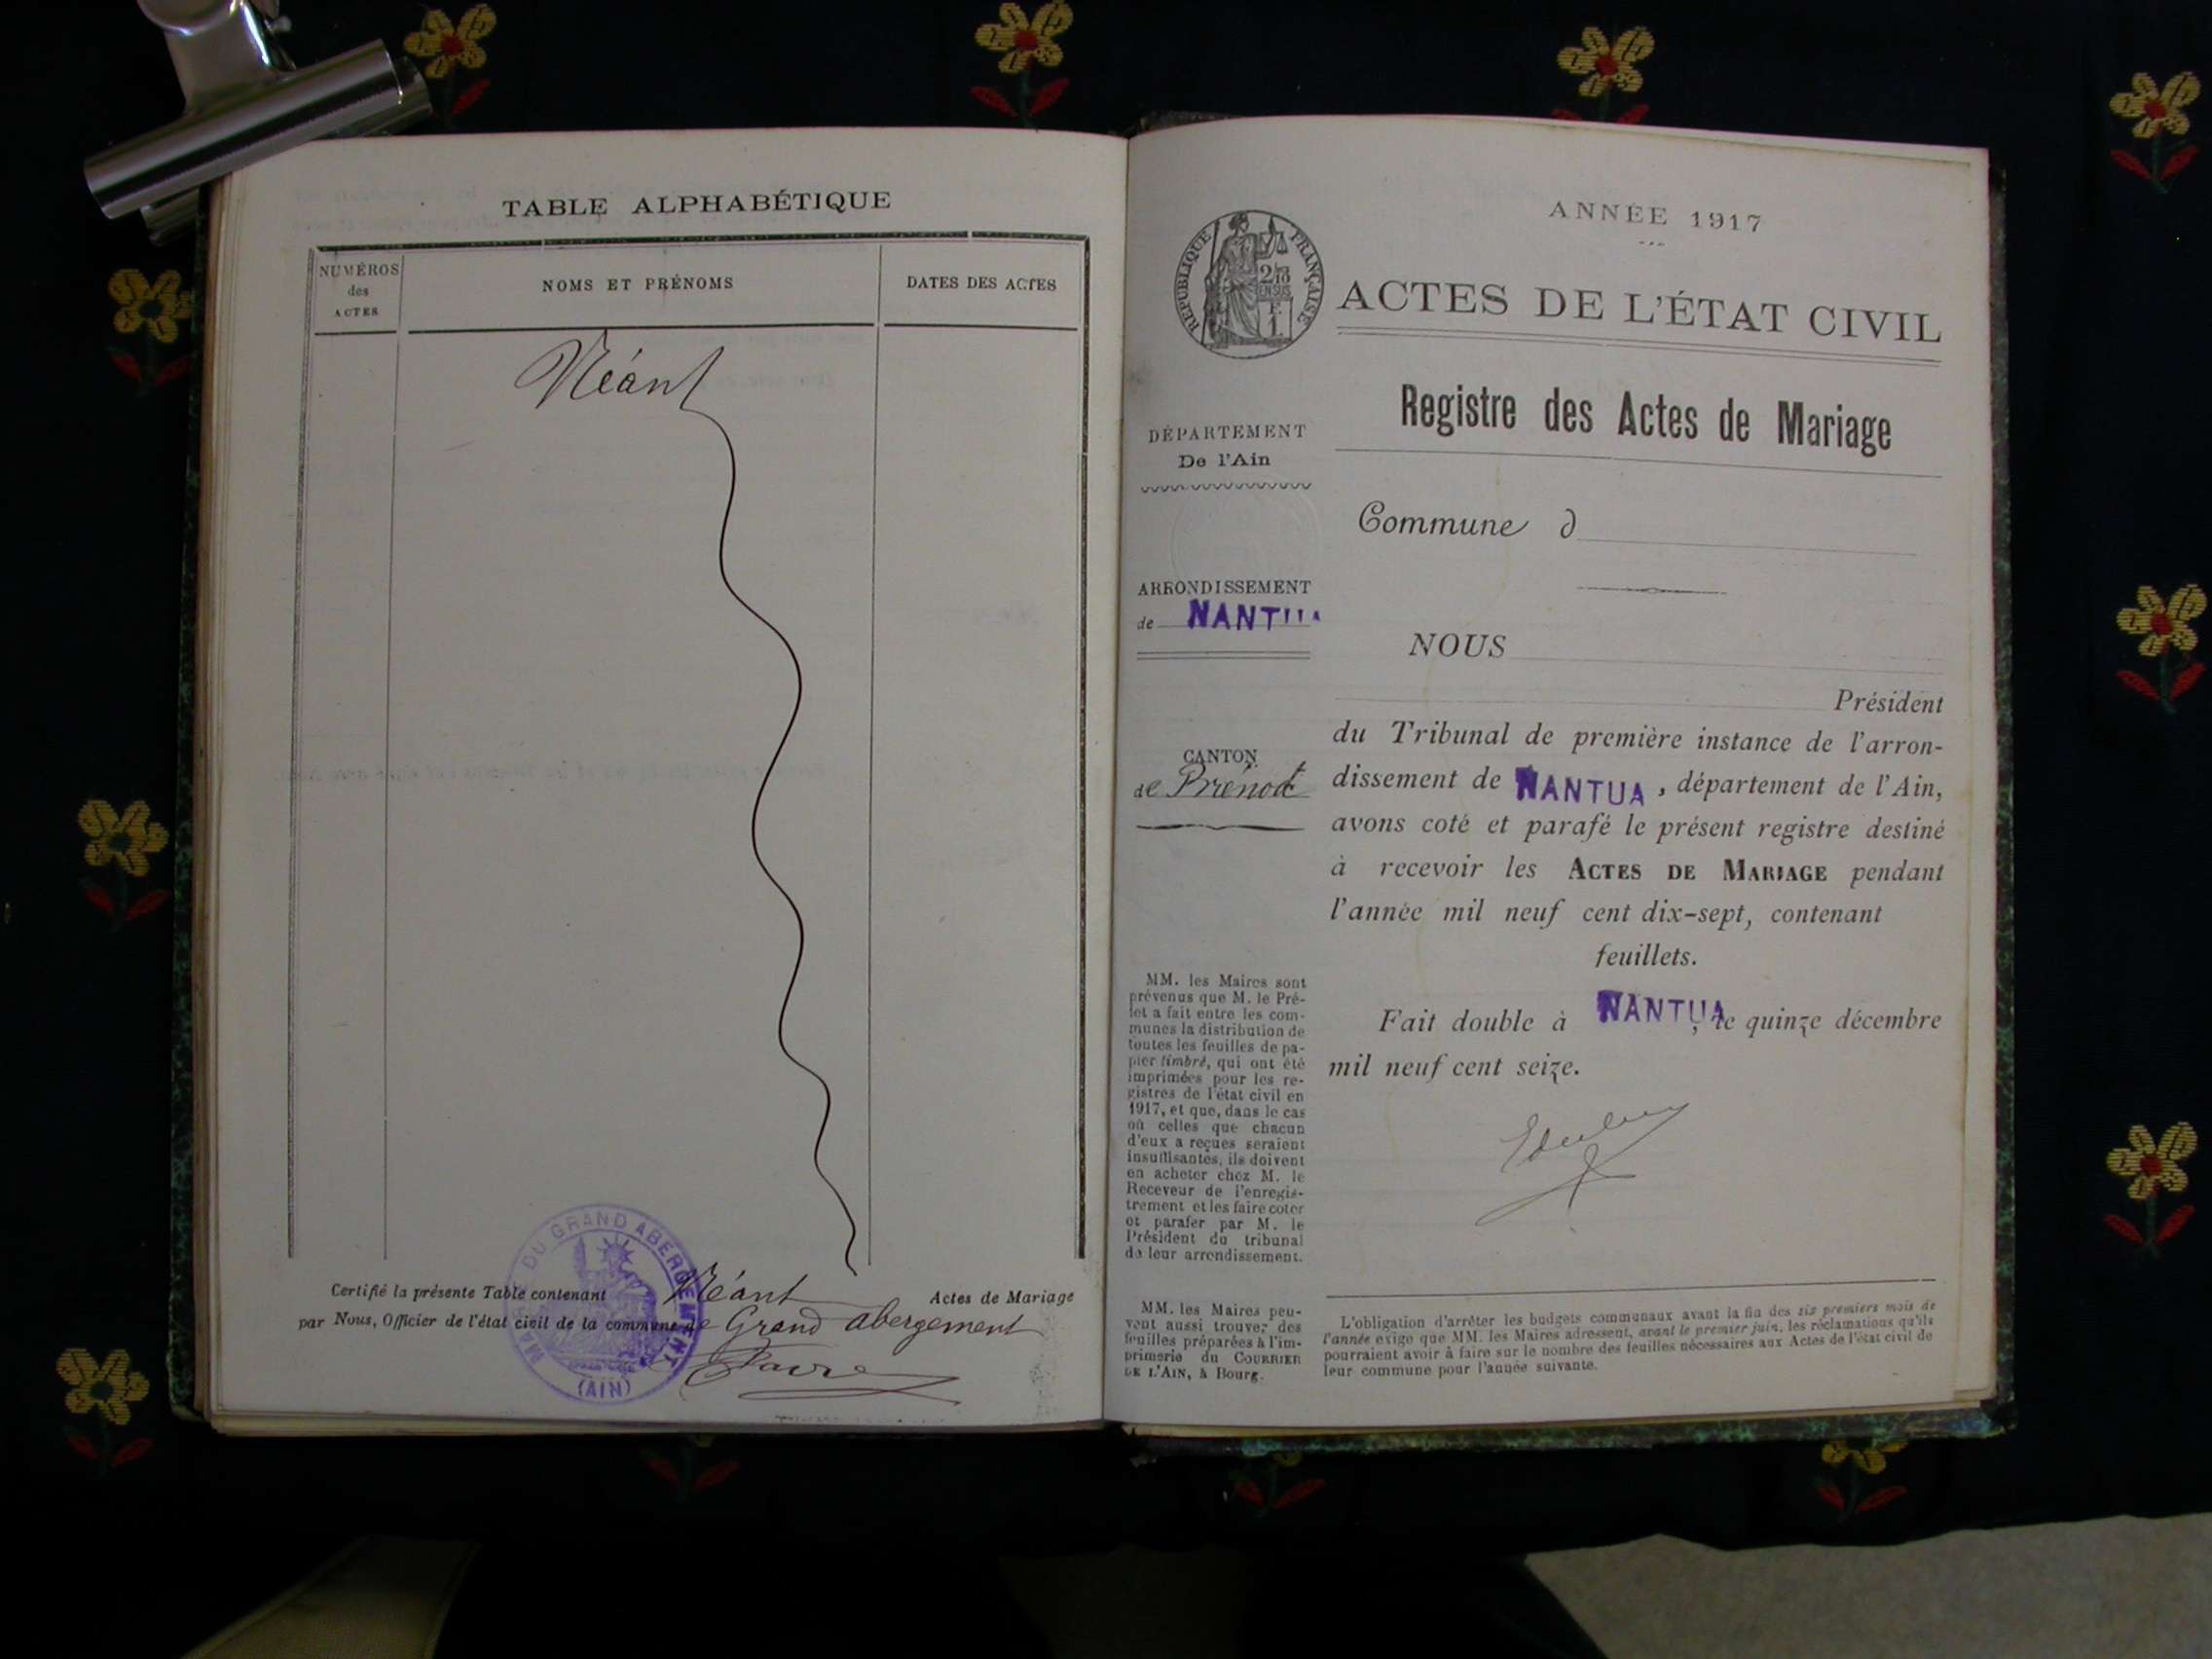 TABLE ALPHABÉTIQUE
NUMÉROS
des
ACTES
NOMS ET PRÉNOMS
DATES DES ACTES
Néant
Certifié la présente Table contenant Néant Actes de Mariage
par Nous, Officier de l'état civil de la commune de Grand abergement
Favre
MAIRIE DU GRAND ABERGEMENT
(AIN)
ANNÉE 1917
RÉPUBLIQUE FRANÇAISE
2/10
EN SUS
F.
1.
ACTES DE L'ÉTAT CIVIL
Registre des Actes de Mariage
DÉPARTEMENT
De l'Ain
Commune d
ARRONDISSEMENT
de NANTUA
NOUS
Président
du Tribunal de première instance de l'arron-
dissement de NANTUA, département de l'Ain,
avons coté et parafé le présent registre destiné
à recevoir les ACTES DE MARIAGE pendant
l'année mil neuf cent dix-sept, contenant
feuillets.
Fait double à NANTUA, le quinze décembre
mil neuf cent seize.
CANTON
de Brénod
MM. les Maires sont
prévenus que M. le Pré-
fet a fait entre les com-
munes la distribution de
toutes les feuilles de pa-
pier timbré, qui ont été
imprimées pour les re-
gistres de l'état civil en
1917, et que, dans le cas
où celles que chacun
d'eux a reçues seraient
insuffisantes, ils doivent
en acheter chez M. le
Receveur de l'enregis-
trement et les faire coter
et parafer par M. le
Président du tribunal
de leur arrondissement.
MM. les Maires peu-
vent aussi trouver des
feuilles préparées à l'im-
primerie du COURRIER
DE L'AIN, à Bourg.
L'obligation d'arrêter les budgets communaux avant la fin des six premiers mois de
l'année exige que MM. les Maires adressent, avant le premier juin, les réclamations qu'ils
pourraient avoir à faire sur le nombre des feuilles nécessaires aux Actes de l'état civil de
leur commune pour l'année suivante.